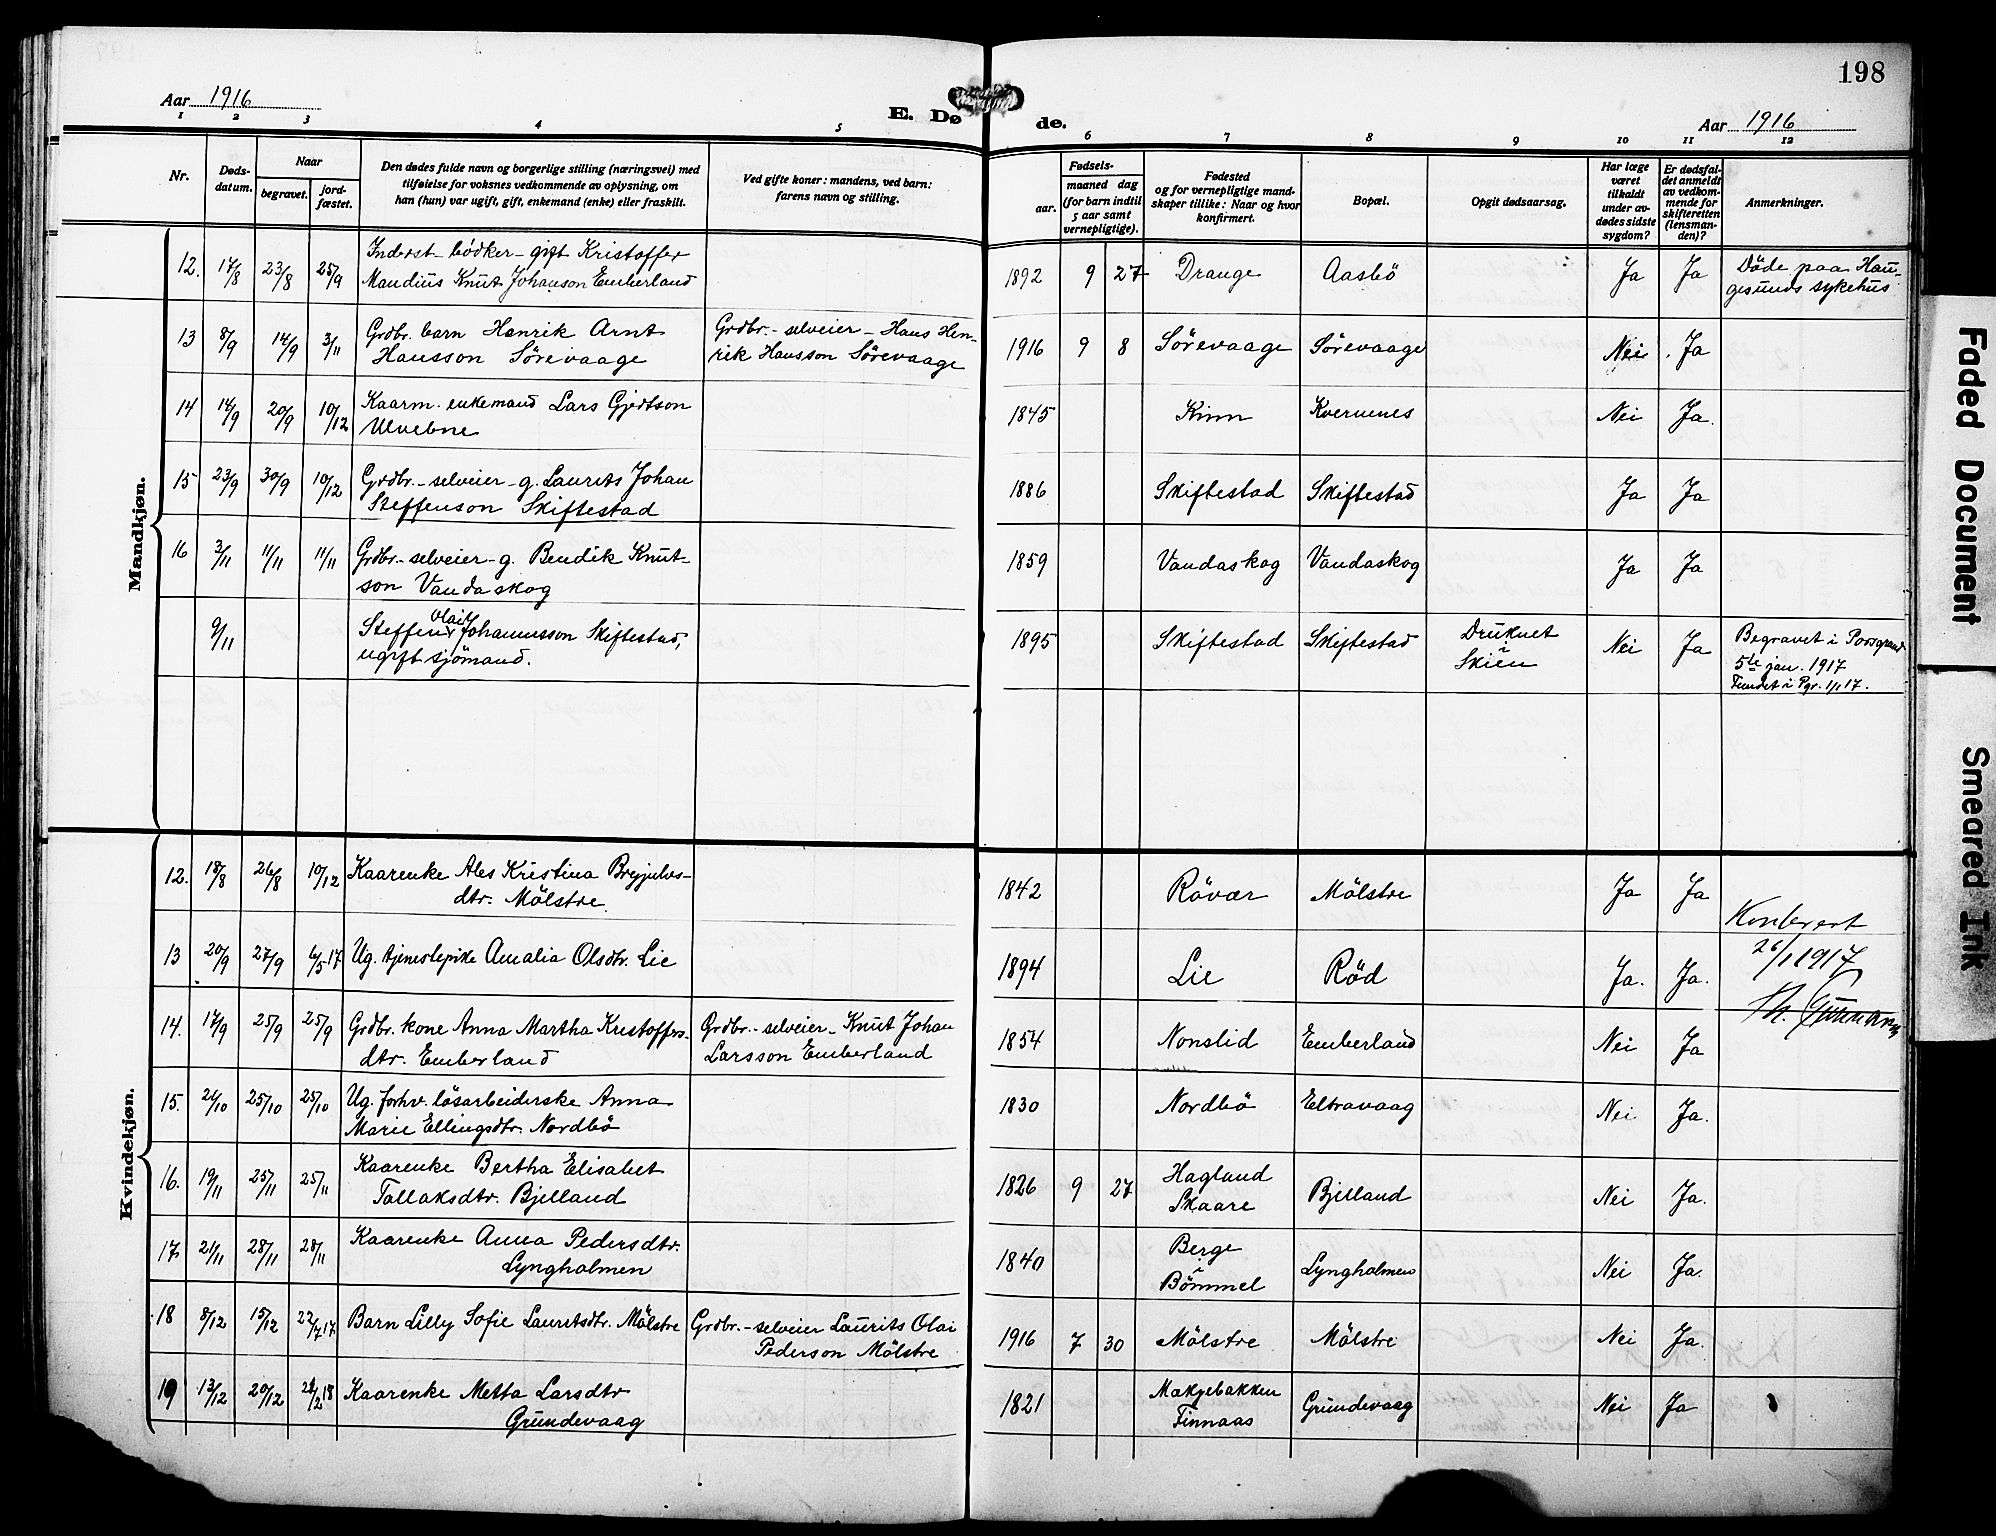 198
Aar 1916
E. Dø
de.
Aar 1916
1 2 3 4 5
6 7 8 9 10 11 12
Nr.
Døds-
datum.
Naar
begravet.
jord-
fæstet.
Den dødes fulde navn og borgerlige stilling (næringsvei) med
tilføielse for voksnes vedkommende av oplysning, om
han (hun) var ugift, gift, enkemand (enke) eller fraskilt.
Ved gifte koner: mandens, ved barn:
farens navn og stilling.
Fødsels-
aar.
maaned dag
(for barn indtil
5 aar samt
vernepligtige).
Fødested
og for vernepligtige mand-
skaper tillike: Naar og hvor
konfirmert.
Bopæl.
Opgit dødsaarsag.
Har læge
været
tilkaldt
under av-
dødes sidste
sygdom?
Er dødsfal-
det anmeldt
av vedkom-
mende for
skifteretten
(lensman-
den)?
Anmerkninger.
Mandkjøn.
12. 17/8 23/8 25/9 Inderst- bödker- gift Kristoffer
Mandius Knut Johanson Emberland
1892 9 27 Drange Aasbö Ja Ja Döde paa Hau-
gesunds sykehus
13 8/9 14/9 3/11 Grdbr. barn Henrik Arnt
Hansson Sörevaage
Grdbr.- selveier - Hans Hen-
rik Hansson Sörevaage
1916 9 8 Sörevaage Sörevaage Nei Ja
14 14/9 20/9 10/12 Kaarm. enkemand Lars Gjertson
Ulvebne
1845 Kinn Kvernenes Nei Ja.
15 23/9 30/9 10/12 Grdbr.- selveier - g. Laurits Johan
Steffenson Skiftestad
1886 Skiftestad Skiftestad Ja Ja
16 3/11 11/11 11/11 Grdbr.- selveier - g. Bendik Knut-
son Vandaskog
1859 Vandaskog Vandaskog Ja Ja
9/11 Steffen Olai Johannesson Skiftestad,
ugift sjömand.
1895 Skiftestad Skiftestad Druknet
i
Skien
Nei Ja Begravet i Porsgrund
5te jan. 1917
Fundet i Pgr. 1/1 17.
Kvindekjøn.
12. 18/8 26/8 10/12 Kaarenke Ales Kristina Brynjulvs-
dtr. Mölstre
1842 Rövær Mölstre Ja Ja
13 20/9 27/9 6/5 17 Ug. tjenestepike Amalia Olsdtr. Lie
1894 Lie Röd Ja. Ja.
26/1 1917
14. 17/9 25/9 25/9 Grdbr. kone Anna Martha Kristoffers-
dtr. Emberland
Grdbr.- selveier - Knut Johan
Larsson Emberland
1854 Nonslid Emberland Nei Ja
15. 21/10 25/10 25/10 Ug. forhv. lösarbeiderske Anna
Marie Ellingsdtr. Nordbö
1830 Nordbö Eltravaag Nei Ja.
16. 19/11 25/11 25/11 Kaarenke Bertha Elisabet
Tallaksdtr. Bjelland
1826 9 27 Hagland
Skaare
Bjelland Nei Ja.
17. 21/11 28/11 28/11 Kaarenke Anna Pedersdtr.
Lyngholmen
1840 Berge
i
Bömmel
Lyngholmen Nei Ja.
18 8/12 15/12 22/7 17 Barn Lilly Sofie Lauritsdtr. Mölstre
Grdbr.- selveier Laurits Olai
Pederson Mölstre
1916 7 30 Mölstre Mölstre Nei Ja.
19 13/12 20/12 Kaarenke Metta Larsdtr
Grundevaag
1821 Finnaas Grundevaag Nei Ja
Faded Document
Smeared Ink